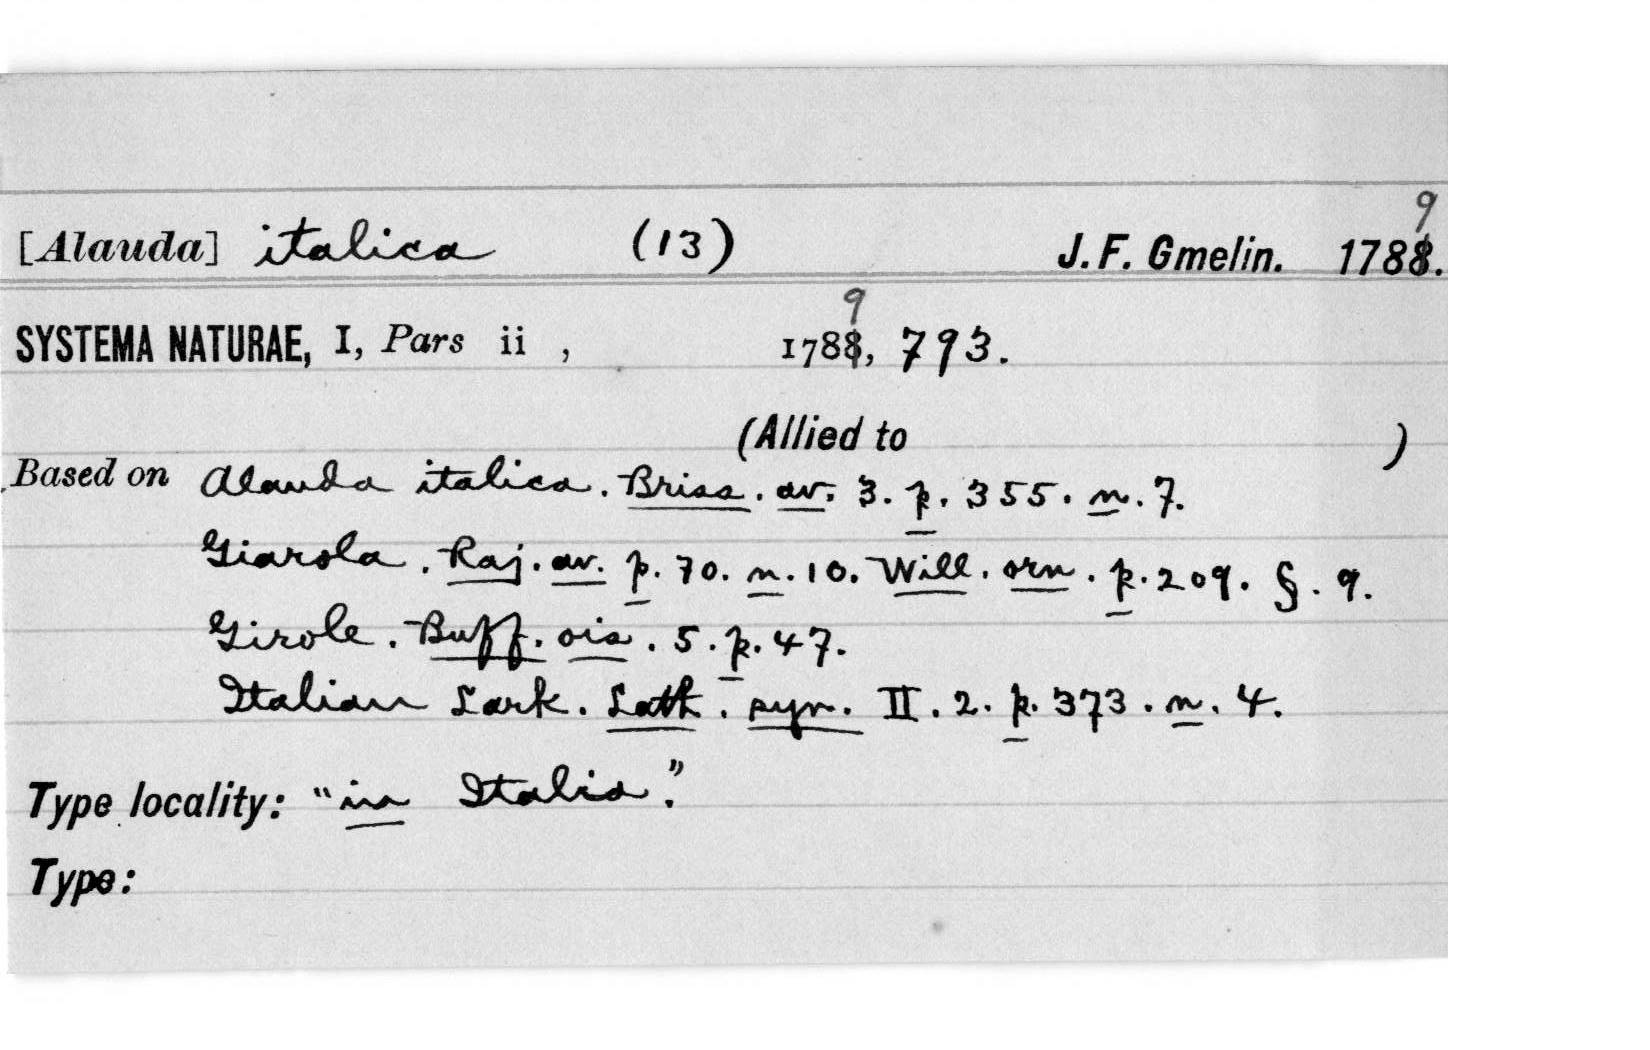 [Alauda] italica (13) J. F. Gmelin. 1789.
SYSTEMA NATURAE, I, Pars ii , 1789, 793.
(Allied to )
Based on Alauda italica. Briss. av. 3. p. 355. n. 7.
Giarola. Raj. av. p. 70. n. 10. Will. orn. p. 209. §. 9.
Girole. Buff. ois. 5. p. 47.
Italian Lark. Lath. syn. II. 2. p. 373. n. 4.
Type locality: "in Italia."
Type: